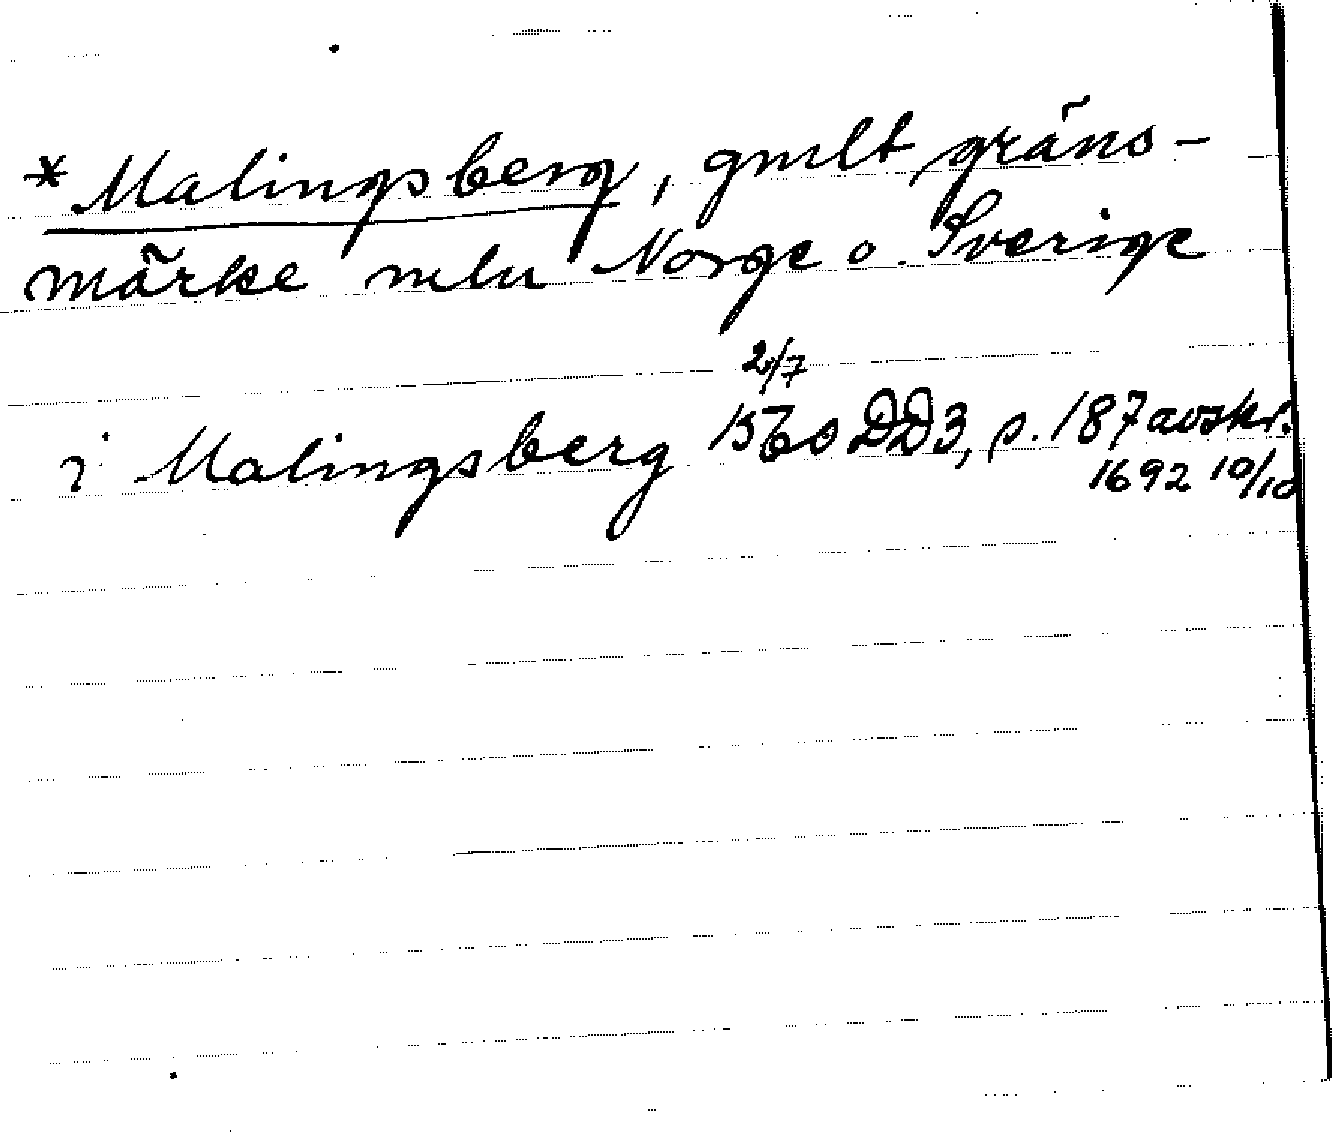 *Malingsberg, gmlt gräns-
märke mln Norge o. Sverige
2/7
i Malingsberg 1560 DD3, s. 187 avskr.
1692 10/10